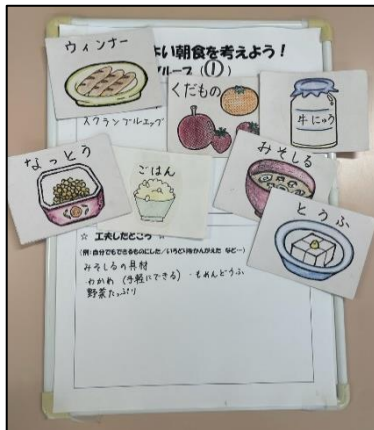 ウィンナー
よい朝食を考えよう!
グループ(①)
くだもの
牛にゅう
スクランブルエッグ
なっとう
ごはん
みそしる
とうふ
☆ 工夫したところ ☆
(例:自分でもできるものにした/いろどりをかんがえた など…)
みそしるの具材
わかめ(手軽にできる)・もめんどうふ
野菜たっぷり